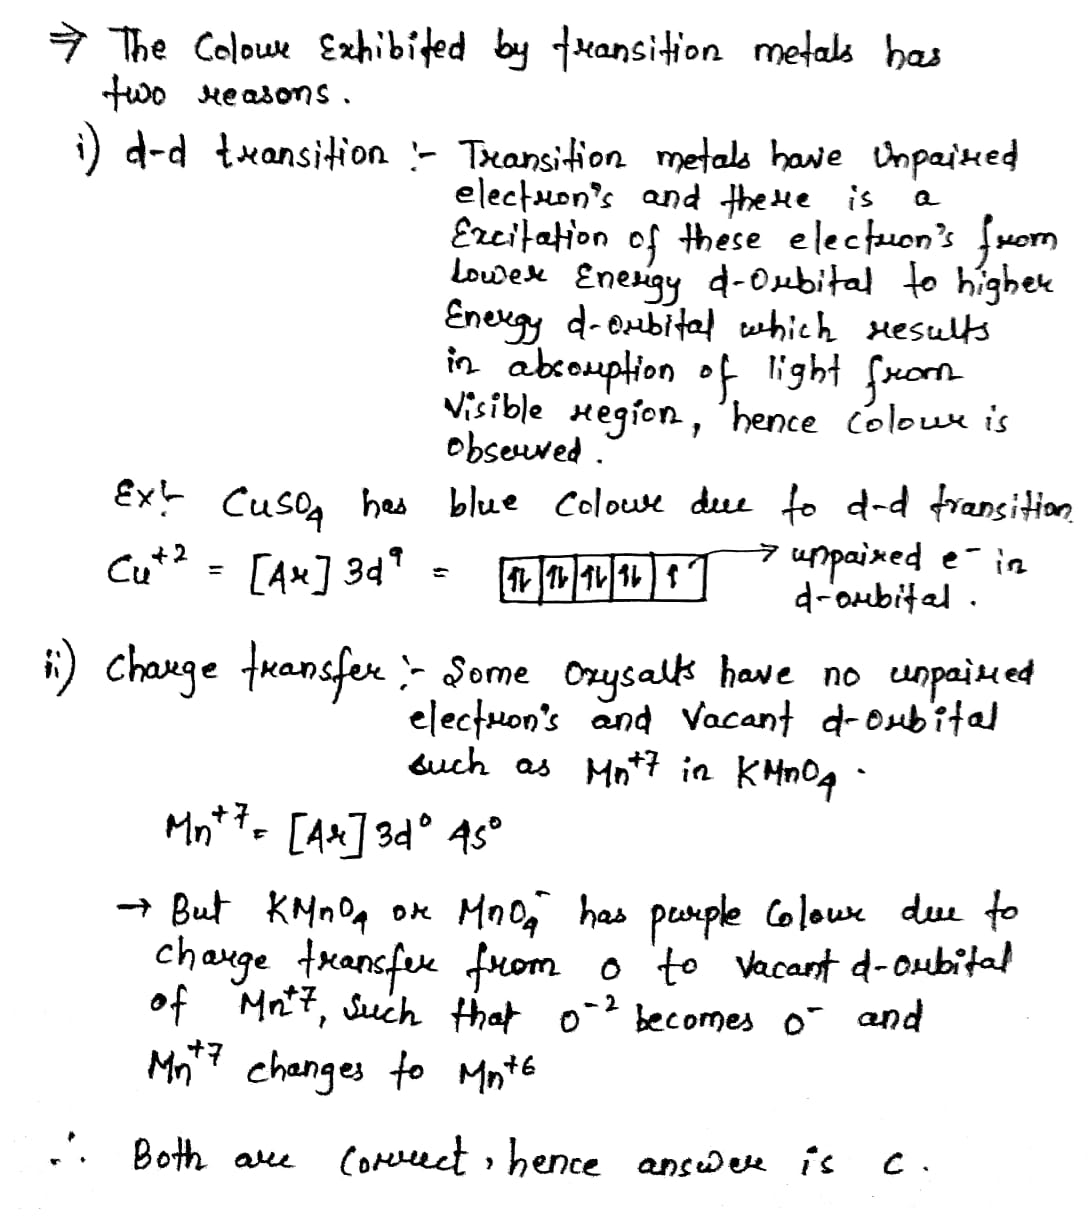 ⇒ The Colour Exhibited by transition metals has
two reasons.
i) d-d transition :- Transition metals have Unpaired
electron's and there is a
Excitation of these electron's from
Lower Energy d-Orbital to higher
Energy d-orbital which results
in absorption of light from
Visible region, hence Colour is
Observed.
Ex:- CuSO4 has blue Colour due to d-d transition
Cu+2 = [Ar] 3d9 = [⇅|⇅|⇅|⇅|↑] → unpaired e- in
d-orbital.
ii) Charge transfer :- Some Oxysalts have no unpaired
electron's and Vacant d-orbital
such as Mn+7 in KMnO4.
Mn+7 = [Ar] 3d0 4s0
→ But KMnO4 or MnO4- has purple Colour due to
charge transfer from O to Vacant d-orbital
of Mn+7, Such that O-2 becomes O- and
Mn+7 changes to Mn+6
∴ Both are Correct, hence answer is C.